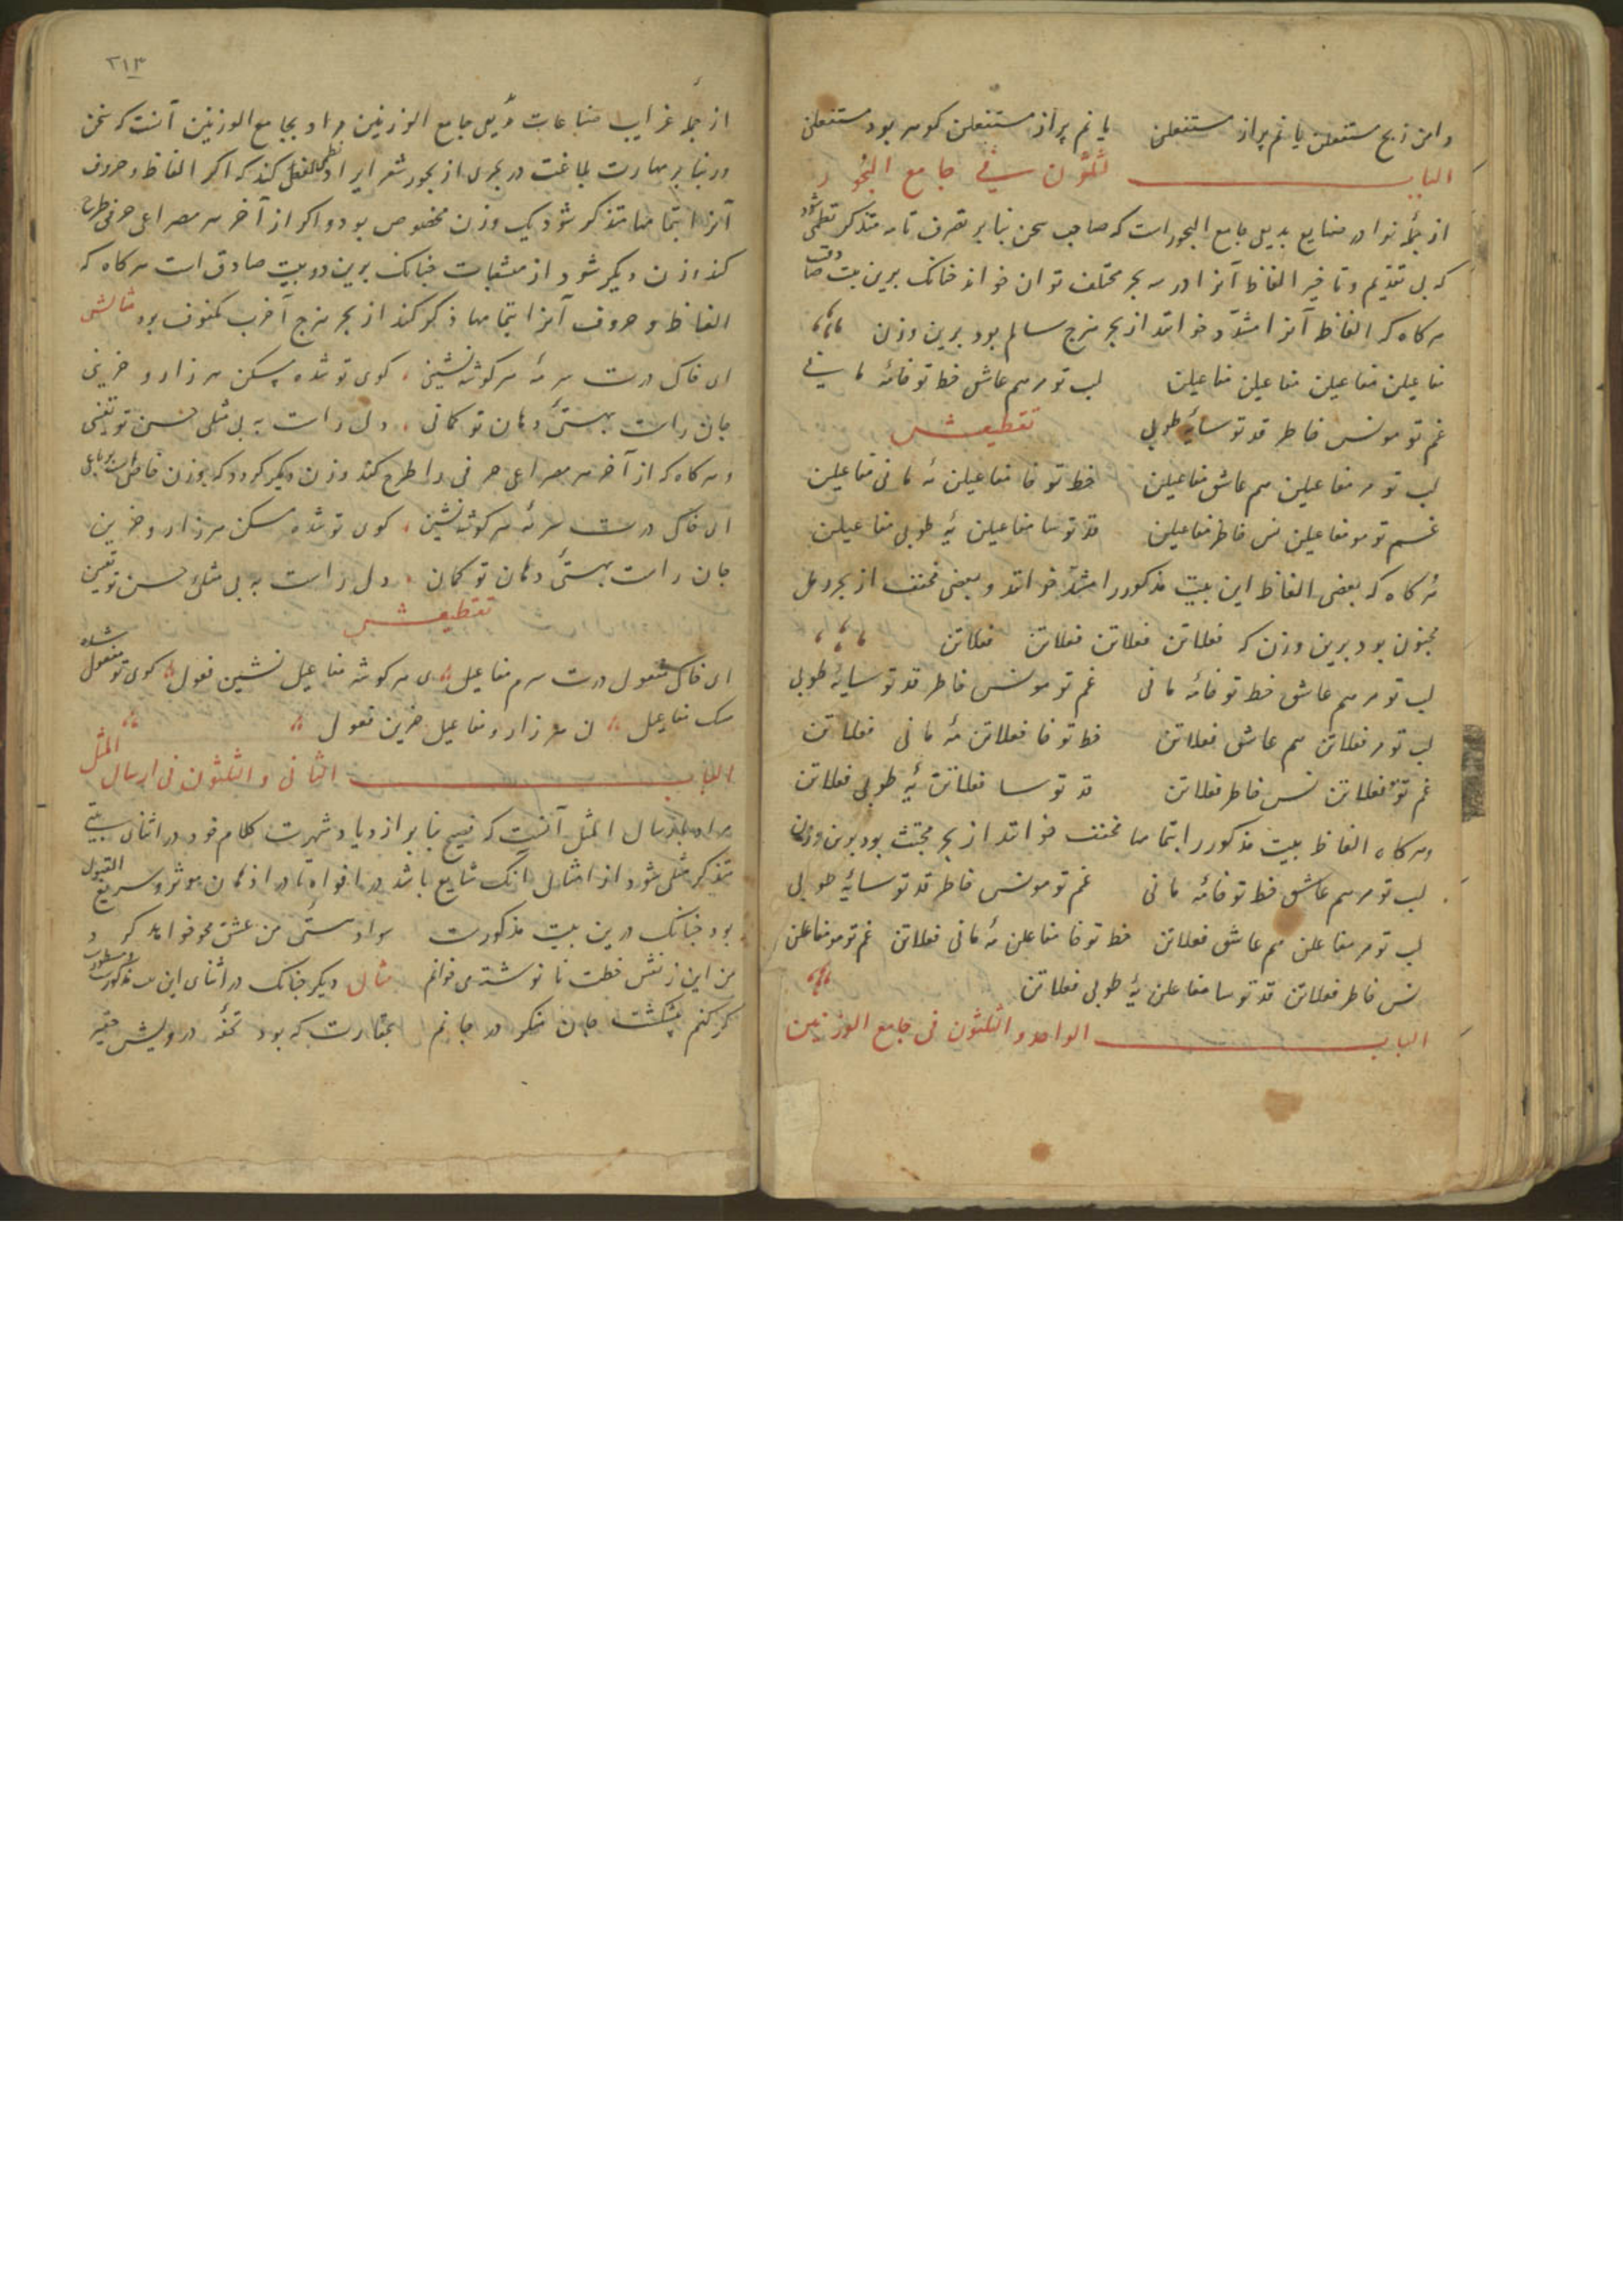 دامن ز بح مستفعلن یا نم پر از مستفعلن یا نم پر از مستفعلن کوهر بود مستفعلن
الباب ثلثون فی جامع البحور
از جمله نوادر صنایع بدیل جامع البحور است که صاحب سخن بنابر تصرف تام متذکر نظمی شود
که بی تقدیم و تاخیر الفاظ آنرا در سه بحر مختلف توان خواند چنانک برین بیت صادق
هر کاه که الفاظ آنرا مشدّد خوانند از بحر هزج سالم بود برین وزن
مفاعیلن مفاعیلن مفاعیلن مفاعیلن لب تو مرهم عاشق خط تو خامهٔ مانی
غم تو مونس خاطر قد تو سایهٔ طوبی تقطیعش
لب تو مر مفاعیلن هم عاشق مفاعیلن خط تو خا مفاعیلن مهٔ مانی مفاعیلن
غم تو مو مفاعیلن نس خاطر مفاعیلن قد تو سا مفاعیلن یهٔ طوبی مفاعیلن
هر کاه که بعضی الفاظ این بیت مذکور را مشدّد خوانند و بعضی مخفف از بحر رمل
مخبون بود برین وزن که فعلاتن فعلاتن فعلاتن فعلاتن
لب تو مرهم عاشق خط تو خامهٔ مانی غم تو مونس خاطر قد تو سایهٔ طوبی
لب تو مر فعلاتن هم عاشق فعلاتن خط تو خا فعلاتن مهٔ مانی فعلاتن
غم تو مو فعلاتن نس خاطر فعلاتن قد تو سا فعلاتن یهٔ طوبی فعلاتن
و هر کاه الفاظ بیت مذکور را بتمامها مخفف خوانند از بحر مجتث بود برین وزن
لب تو مرهم عاشق خط تو خامهٔ مانی غم تو مونس خاطر قد تو سایهٔ طوبی
لب تو مر مفاعلن هم عاشق فعلاتن خط تو خا مفاعلن مهٔ مانی فعلاتن غم تو مو مفاعلن
نس خاطر فعلاتن قد تو سا مفاعلن یهٔ طوبی فعلاتن
الباب الواحد و الثلثون فی جامع الوزنین
۲۱۳
از جمله غرایب صناعات جامع الوزنین مراد بجامع الوزنین آنست که سخن
ور بنابر مهارت بلاغت در بحری از بحور شعر ایراد نظمی کند که اکر الفاظ و حروف
آنرا بتمامها متذکر شود یک وزن مخصوص بود و اکر از آخر هر مصراعی حرفی طرح
کند وزن دیکر شود از مشعبات چنانک برین دو بیت صادق است هر کاه که
الفاظ و حروف آنرا بتمامها ذکر کند از بحر هزج آخرب مکفوف بود مثالش
ای خاک درت سرمهٔ هر کوشه نشینی کوی تو شده مسکن هر زار و حزینی
جان راست بهستیٔ دهان تو کمانی دل راست به بی مثلی حسن تو یقینی
و هر کاه که از آخر هر مصراعی حرفی را طرح کند وزن دیکر کردد که بوزن
ای خاک درت سرمهٔ هر کوشه نشین کوی تو شده مسکن هر زار و حزین
جان راست بهستیٔ دهان تو کمان دل راست به بی مثلیٔ حسن تو یقین
تقطیعش
ای خاک مفعول درت سرم مفاعیل ی هر کوشه مفاعیل نشین فعول کوی تو مفعول شده
مسک مفاعیل ن هر زار و مفاعیل حزین فعول
الباب الثانی و الثلثون فی ارسال المثل
مراد بارسال المثل آنست که فصیح بنابر ازدیاد شهرت کلام خود در اثنای بیتی
متذکر مثلی شود از امثال آنک شایع باشد در افواه تا در اذهان موثر و سریع القبول
بود چنانک درین بیت مذکورست سواد ستی من عشق محو خواهد کرد
من این ز نقش خطت نا نوشته می خوانم مثال دیکر چنانک در اثنای این بیت مذکورست
کر کنم پیشکشت جان منکر در جانم بحقارت که بود تحفهٔ درویش حقیر